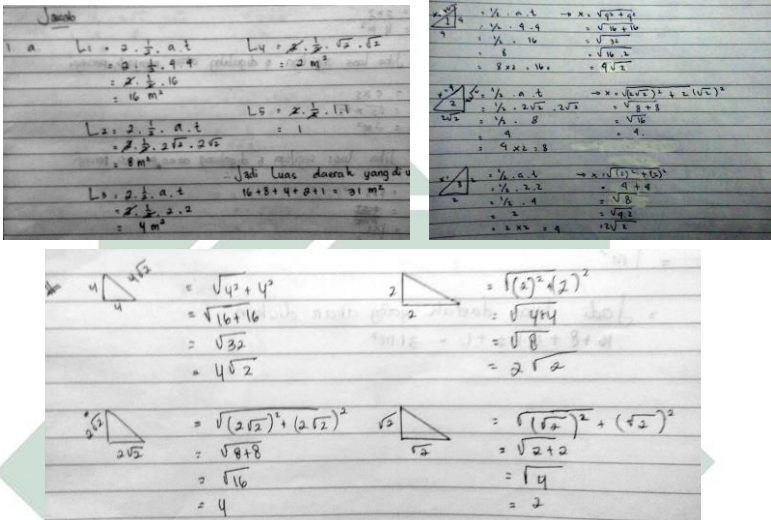 Jawab
1 a. L1 = 2 . 1/2 . a . t
= 2 . 1/2 . 4 . 4
= 2 . 1/2 . 16
= 16 m²
L2 = 2 . 1/2 . a . t
= 2 . 1/2 . 2√2 . 2√2
= 8 m²
L3 = 2 . 1/2 . a . t
= 2 . 1/2 . 2 . 2
= 4 m²
L4 = 2 . 1/2 . √2 . √2
= 2 m²
L5 = 2 . 1/2 . 1.1
= 1
∴ Jadi Luas daerah yang di
16+8+4+2+1 = 31 m²
1 4
4
= 1/2 . a . t
= 1/2 . 4 . 4
= 1/2 . 16
= 8
= 8 x 2 = 16
→ x = √4² + 4²
= √16 + 16
= √32
= √16 . 2
= 4√2
2
2√2
= 1/2 . a . t
= 1/2 . 2√2 . 2√2
= 1/2 . 8
= 4
= 4 x 2 = 8
→ x = √(2√2)² + 2(√2)²
= √8 + 8
= √16
= 4
3 2
2
= 1/2 . a . t
= 1/2 . 2 . 2
= 1/2 . 4
= 2
= 2 x 2 = 4
→ x = √(2)² + (2)²
= 4 + 4
= √8
= √4.2
2√2
4 4√2
4
= √4² + 4²
= √16 + 16
= √32
= 4√2
2
2
= √(2)² + (2)²
= √4+4
= √8
= 2√2
2√2
2√2
= √(2√2)² + (2√2)²
= √8+8
= √16
= 4
√2
√2
= √(√2)² + (√2)²
= √2+2
= √4
= 2